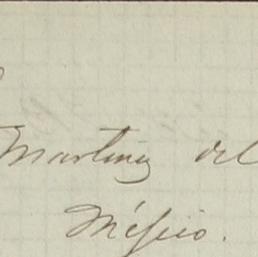 Martinez del
Méjico.